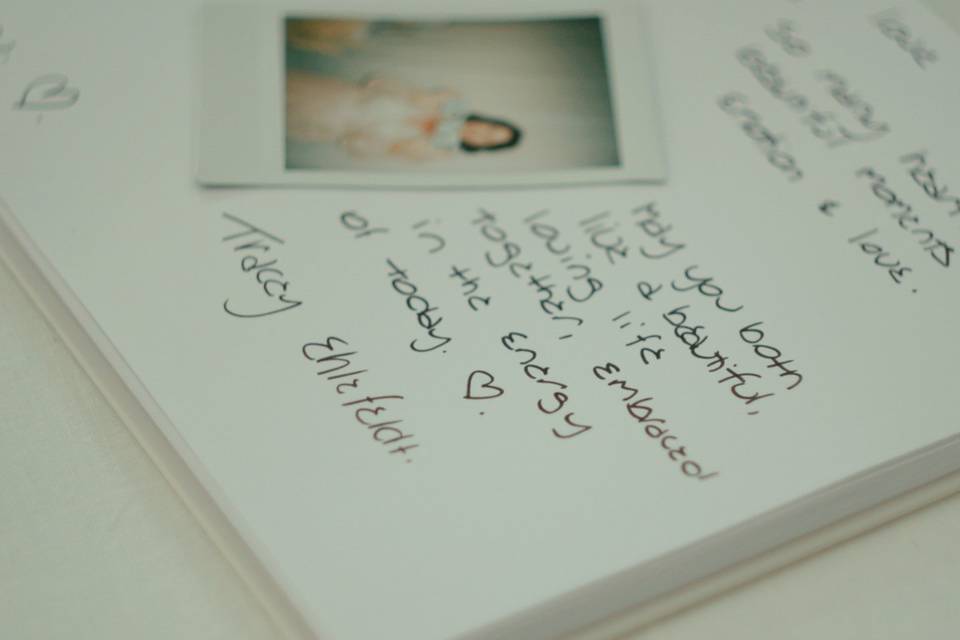 love
so many
beautiful moments
emotion & love.
May you both
live a beautiful,
loving life embraced
together,
in the energy
of today. ♡.
Tracey Ehlefeldt.